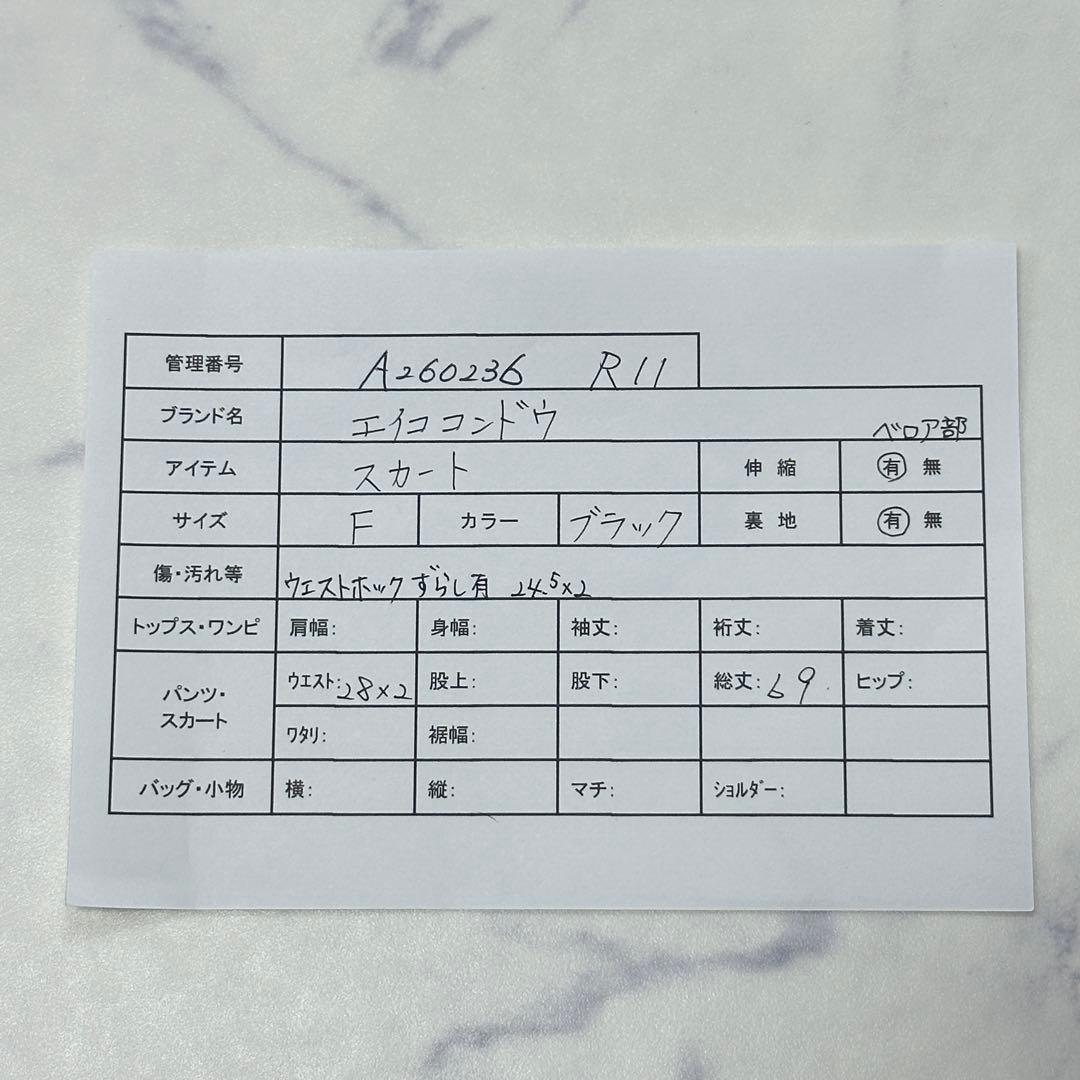 管理番号 A260236 R11
ブランド名 エイココンドウ ベロア部
アイテム スカート 伸縮 有 無
サイズ F カラー ブラック 裏地 有 無
傷・汚れ等 ウエストホックずらし有 24.5×2
トップス・ワンピ 肩幅: 身幅: 袖丈: 裄丈: 着丈:
パンツ・スカート ウエスト:28×2 股上: 股下: 総丈:69. ヒップ:
ワタリ: 裾幅:
バッグ・小物 横: 縦: マチ: ショルダー: